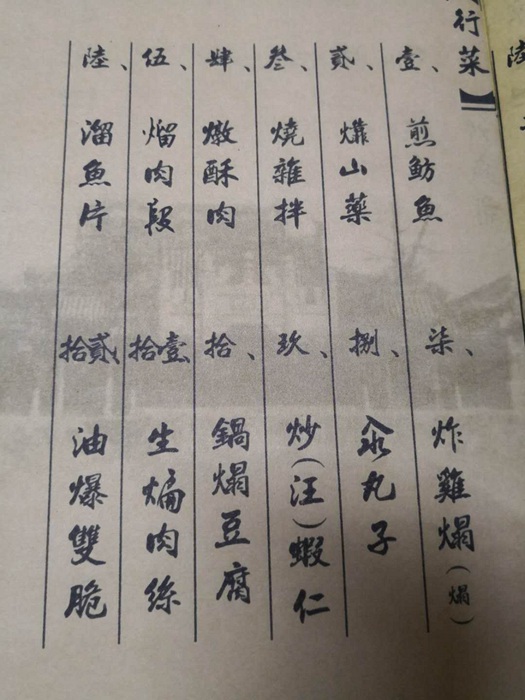 行菜】
壹、煎鲂魚
貳、㸆山藥
叁、燒雜拌
肆、燉酥肉
伍、熘肉段
陸、溜魚片
柒、炸雞
捌、汆丸子
玖、炒(汪)蝦仁
拾、鍋豆腐
拾壹、生煸肉絲
拾貳、油爆雙脆
陸